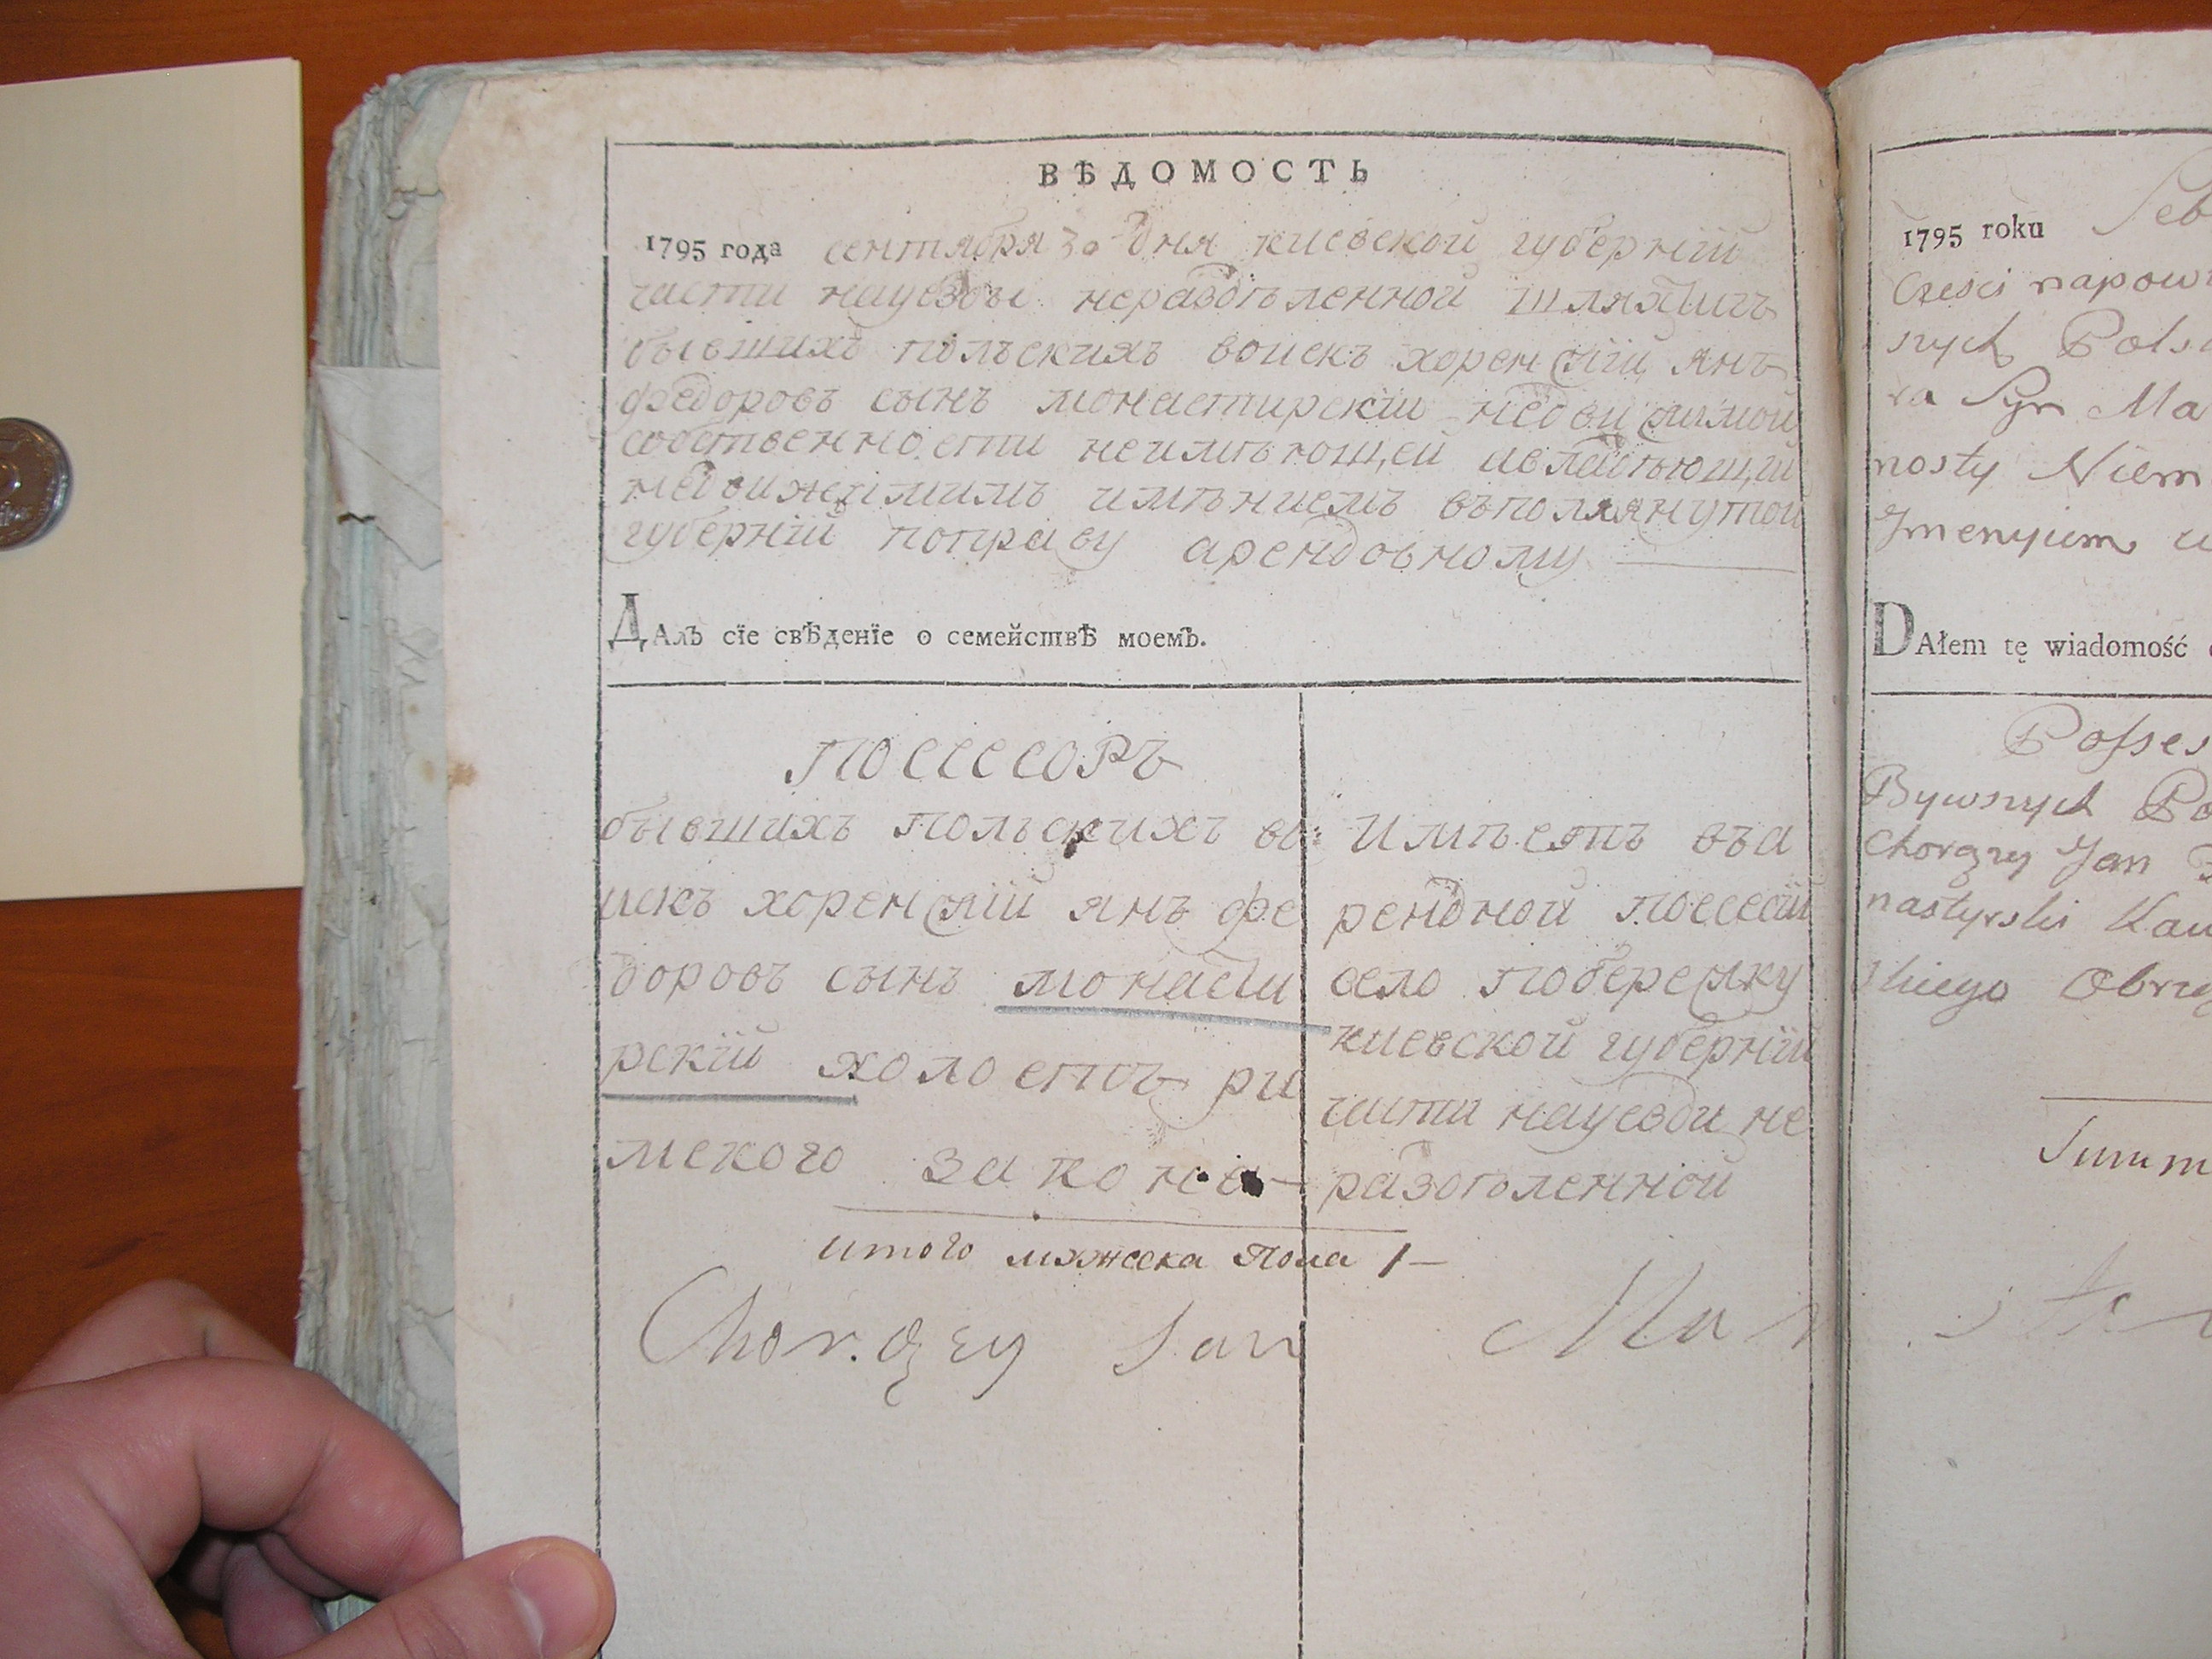 ВѢДОМОСТЬ
1795 года сентября 30 дня киевской губернїй
части науезды неразделенной шляхтичъ
бывшихъ полъскихъ воискъ хоренжїй янъ
федоровъ сынъ монастирскїи недвижимой
собственности неимѣющей ивладѣющїи
недвижимимъ имѣниемъ въполянутой
губернїй поправу арендовному
ДАлЪ сїе свѢденїе о семействѢ моемЪ.
поссесоръ
бывшихъ польскихъ во
искъ хоренжїй янъ фе
доровъ сынъ монасти
рскїй холостъ ри
мского закона
Имѣетъ въа
рендной поссесїи
село побережку
киевской губернїи
части науезди не
разделенной
итого мужеска пола 1
Chorąży Jan Mon
1795 roku Seb
Czesci napow
snych Pols
ra Syn Mo
nosty Niem
Jmenyium
DAłem tę wiadomość
Posses
Bywsnych Po
Chorązy Jan
nastyrski Kaw
skiego Obrzą
Summ